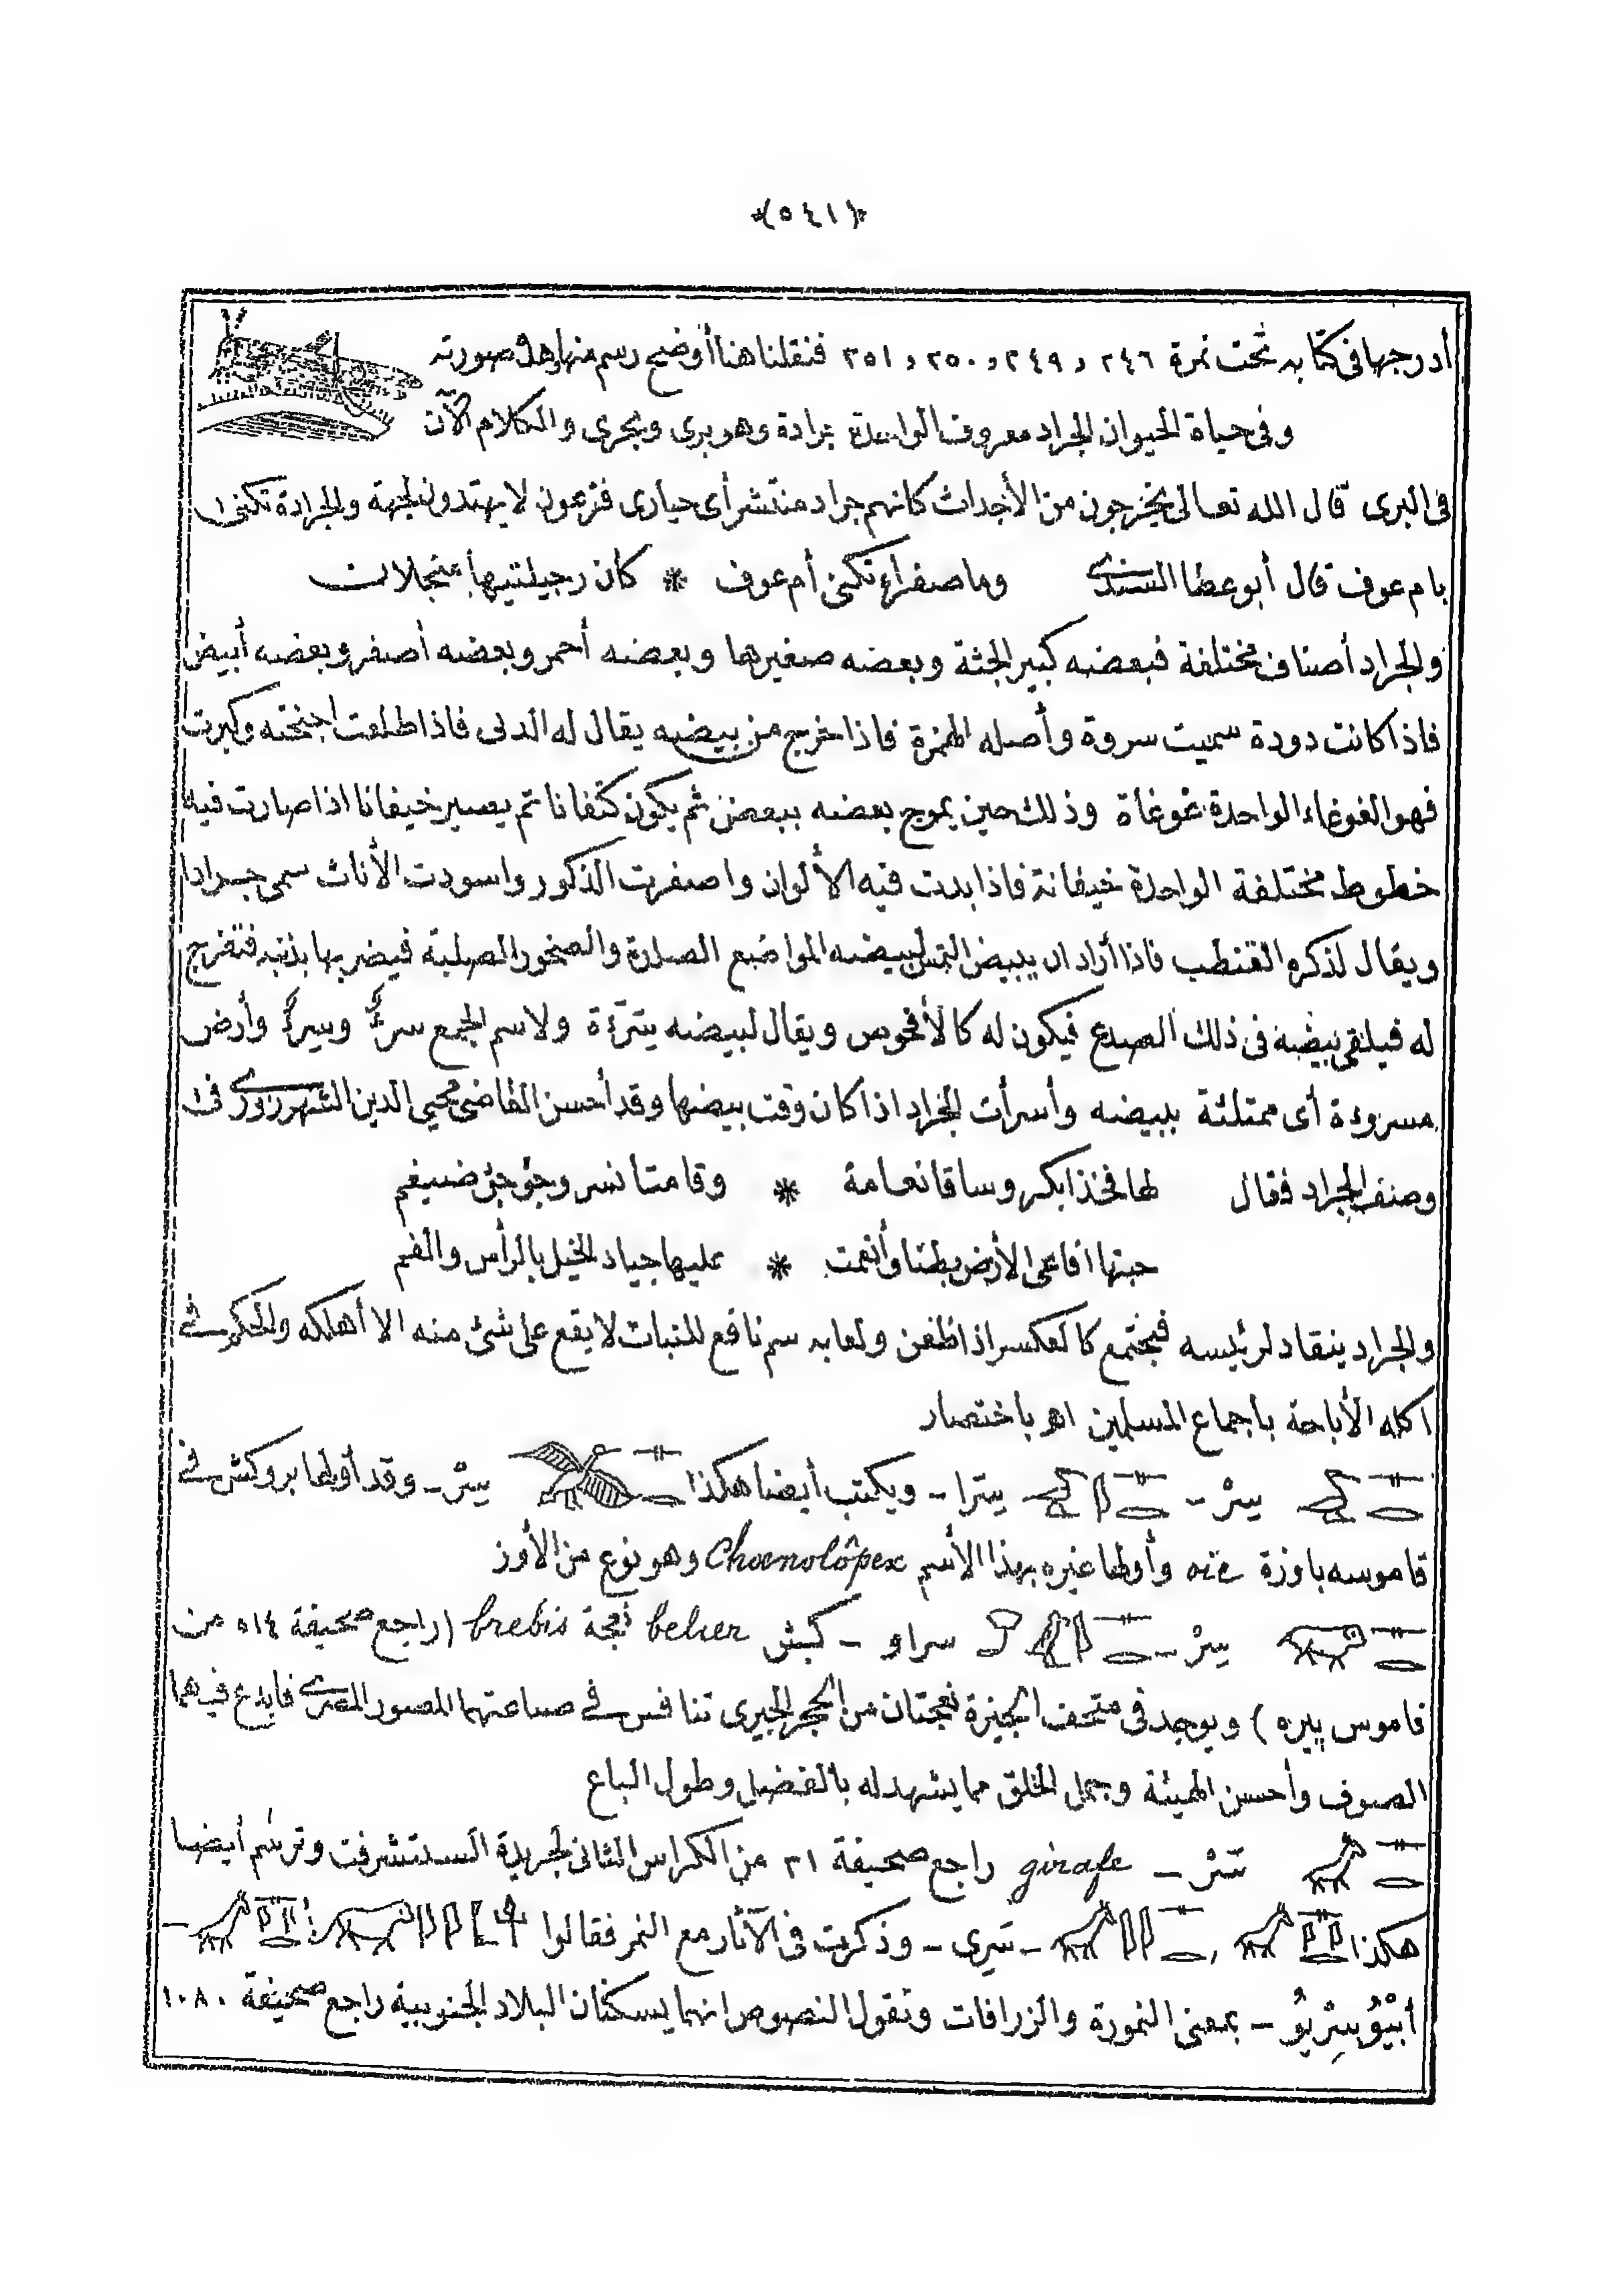 (٥٤١)
أدرجها فى كتابه تحت نمرة ٢٤٦ و ٢٤٩ و ٢٥٠ و ٢٥١ فنقلنا هنا أوضح رسم منها وهذه صورته
وفى حياة الحيوان الجراد معروف الواحدة جرادة وهو برى وبحرى والكلام الآن
فى البرى قال الله تعالى يخرجون من الأجداث كانهم جراد منتشر أى حيارى فزعون لا يهتدون لجهة والجرادة تكنى
بام عوف قال أبو عطا السندى وما صفراء تكنى أم عوف * كان رجيلتيها منجلات
والجراد أصناف مختلفة فبعضه كبير الجثة وبعضه صغيرها وبعضه أحمر وبعضه أصفر وبعضه أبيض
فاذا كانت دودة سميت سروة وأصله الهمزة فاذا خرج من بيضه يقال له الدبى فاذا طلعت اجنحته وكبرت
فهو الغوغاء الواحدة غوغاة وذلك حين يموج بعضه ببعض ثم يكون كتفانا ثم يصير خيفانا اذا صارت فيه
خطوط مختلفة الواحدة خيفانة فاذا بدت فيه الألوان واصفرت الذكور واسودت الأناث سمى جرادا
ويقال لذكره القنطب فاذا أراد ان يبيض التمس لبيضه المواضع الصلدة والصخور الصلبة فيضربها بذنبه فتفرج
له فيلقى بيضه فى ذلك الصدع فيكون له كالأفحوص ويقال لبيضه سرأة ولاسم الجمع سرءٌ وسرءٌ وأرض
مسروءة أى ممتلئة ببيضه وأسرأت الجراد اذا كان وقت بيضها وقد أحسن القاضى محيي الدين الشهرزورى فى
وصف الجراد فقال لها فخذا بكر وساقا نعامة * وقامتا نسر وجؤجؤ ضيغم
حبتها افاعى الأرض بطنا وأنعمت * عليها جياد الخيل بالرأس والفم
والجراد ينقاد لرئيسه فيجتمع كالعكسر اذا ظعن ولعابه سم ناقع للنبات لا يقع على شئ منه الا أهلكه والحكم فى
اكله الأباحة باجماع المسلمين اهـ باختصار
سِرْ - سِرَا - ويكتب أيضا هكذا سِرْ - وقد أولها بروكش فى
قاموسه باوزة oie وأولها غيره بهذا الأسم Chœnolôpex وهو نوع من الأوز
سِرْ - سراو - كبش belier نعجة brebis (راجع صحيفة ٥١٤ من
قاموس پيره) ويوجد فى متحف الجيزة نعجتان من الحجر الجيرى تنافس فى صناعتهما المصور المصرى فابدع فيهما
الصوف وأحسن الهيئة وجمل الخلق مما يشهد له بالفضل وطول الباع
سَرْ - girafe راجع صحيفة ٣١ من الكراس الثانى لجريدة السدتشرفت وترسم أيضا
هكذا , - سَرِى - وذكرت فى الآثار مع النمر فقالوا
أَبْيُو سِرْيُو - بمعنى النمورة والزرافات وتقول النصوص انهما يسكنان البلاد الجنوبية راجع صحيفة ١٠٨٠